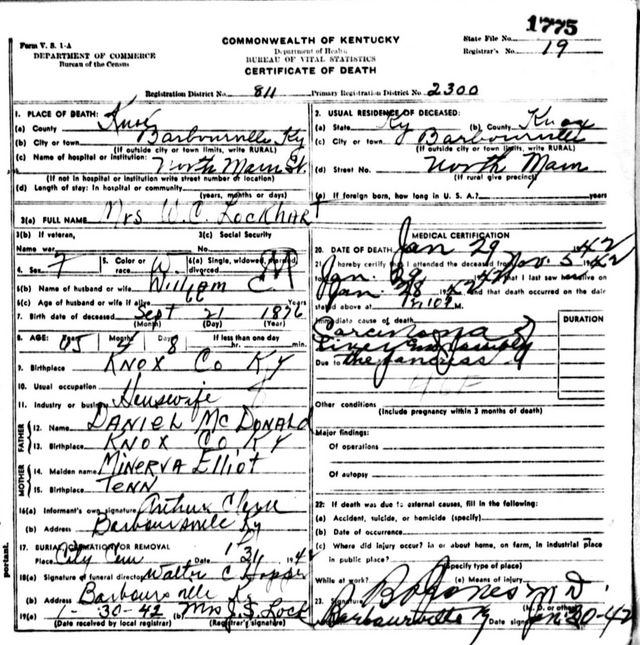 1775
Form V. S. 1-A
DEPARTMENT OF COMMERCE
Bureau of the Census
COMMONWEALTH OF KENTUCKY
Department of Health
BUREAU OF VITAL STATISTICS
CERTIFICATE OF DEATH
State File No.
Registrar's No. 19
Registration District No. 811 Primary Registration District No. 2300
1. PLACE OF DEATH:
(a) County Knox
(b) City or town Barbourville Ky
(If outside city or town limits, write RURAL)
(c) Name of hospital or institution:
North Main St.
(If not in hospital or institution write street number or location)
(d) Length of stay: In hospital or community
(years, months or days)
2. USUAL RESIDENCE OF DECEASED:
(a) State Ky (b) County Knox
(c) City or town Barbourville
(If outside city or town limits, write RURAL)
(d) Street No. North Main
(If rural give precinct)
(e) If foreign born, how long in U. S. A.? years
3(a) FULL NAME Mrs W. C. Lockhart
3(b) If veteran,
Name war
3(c) Social Security
No.
4. Sex F
5. Color or race W.
6(a) Single, widowed, married, divorced M
6(b) Name of husband or wife William C.
6(c) Age of husband or wife if alive Years
7. Birth date of deceased Sept 21 1876
(Month) (Day) (Year)
8. AGE: Years Months Days If less than one day
65 4 8 hr. min.
9. Birthplace KNOX Co KY
10. Usual occupation
11. Industry or business Housewife
FATHER
12. Name DANIEL McDONALD
13. Birthplace KNOX Co KY
MOTHER
14. Maiden name MINERVA Elliot
15. Birthplace TENN
16(a) Informant's own signature Arthur
(b) Address Barboursville Ky
17. BURIAL, CREMATION OR REMOVAL
Place City Cem Date 1 31 1942
18(a) Signature of funeral director Walter C Hopper
(b) Address Barboursville Ky
19(a) 1-30-42 Mrs J. S. Lock
(Date received by local registrar) (Registrar's signature)
MEDICAL CERTIFICATION
20. DATE OF DEATH Jan 29 1942
21. I hereby certify that I attended the deceased from Nov. 5 1942
Jan. 29 1942 that I last saw h alive on
Jan. 28 1942 and that death occurred on the date
stated above at M.
Immediate cause of death
Carcinoma of
Liver and possibly
Due to the pancreas
DURATION
Other conditions
(Include pregnancy within 3 months of death)
Major findings:
Of operations
Of autopsy
22. If death was due to external causes, fill in the following:
(a) Accident, suicide, or homicide (specify)
(b) Date of occurrence
(c) Where did injury occur? in or about home, on farm, in industrial place
in public place?
(Specify type of place)
While at work? (e) Means of injury
23. Signature Jones M D.
(M. D. or other)
Barbourville Ky Date signed Jan-30-42
portant.